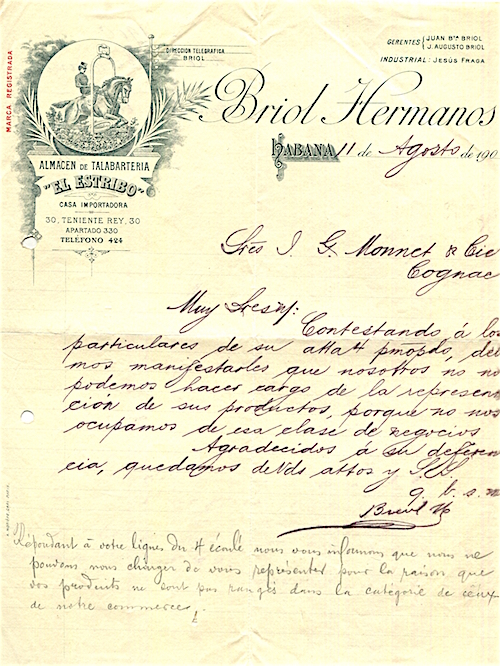 MARCA REGISTRADA
DIRECCION TELEGRÁFICA
BRIOL
GERENTES JUAN Bta BRIOL
J. AUGUSTO BRIOL
INDUSTRIAL: JESÚS FRAGA
Briol Hermanos
HABANA 11 de Agosto de 190
ALMACEN DE TALABARTERIA
"EL ESTRIBO"
CASA IMPORTADORA
30, TENIENTE REY, 30
APARTADO 330
TELÉFONO 424
Sres J. G. Monnet & Cie
Cognac
Muy Sres ntrs:
Contestando á los
particulares de su atta 4 pmopdo, debe
mos manifestarles que nosotros no no
podemos hacer cargo de la represen
ción de sus productos, porque no nos
ocupamos de esa clase de negocios
Agradecidos á su deferen
cia, quedamos de Vds attos y S.S.
q. b. s. m
Briol
Répondant à votre lignes du 4 écoulé nous vous informons que nous ne
pouvons nous charger de vous représenter pour la raison que
vos produits ne sont pas rangés dans la catégorie de ceux
de notre commerce.